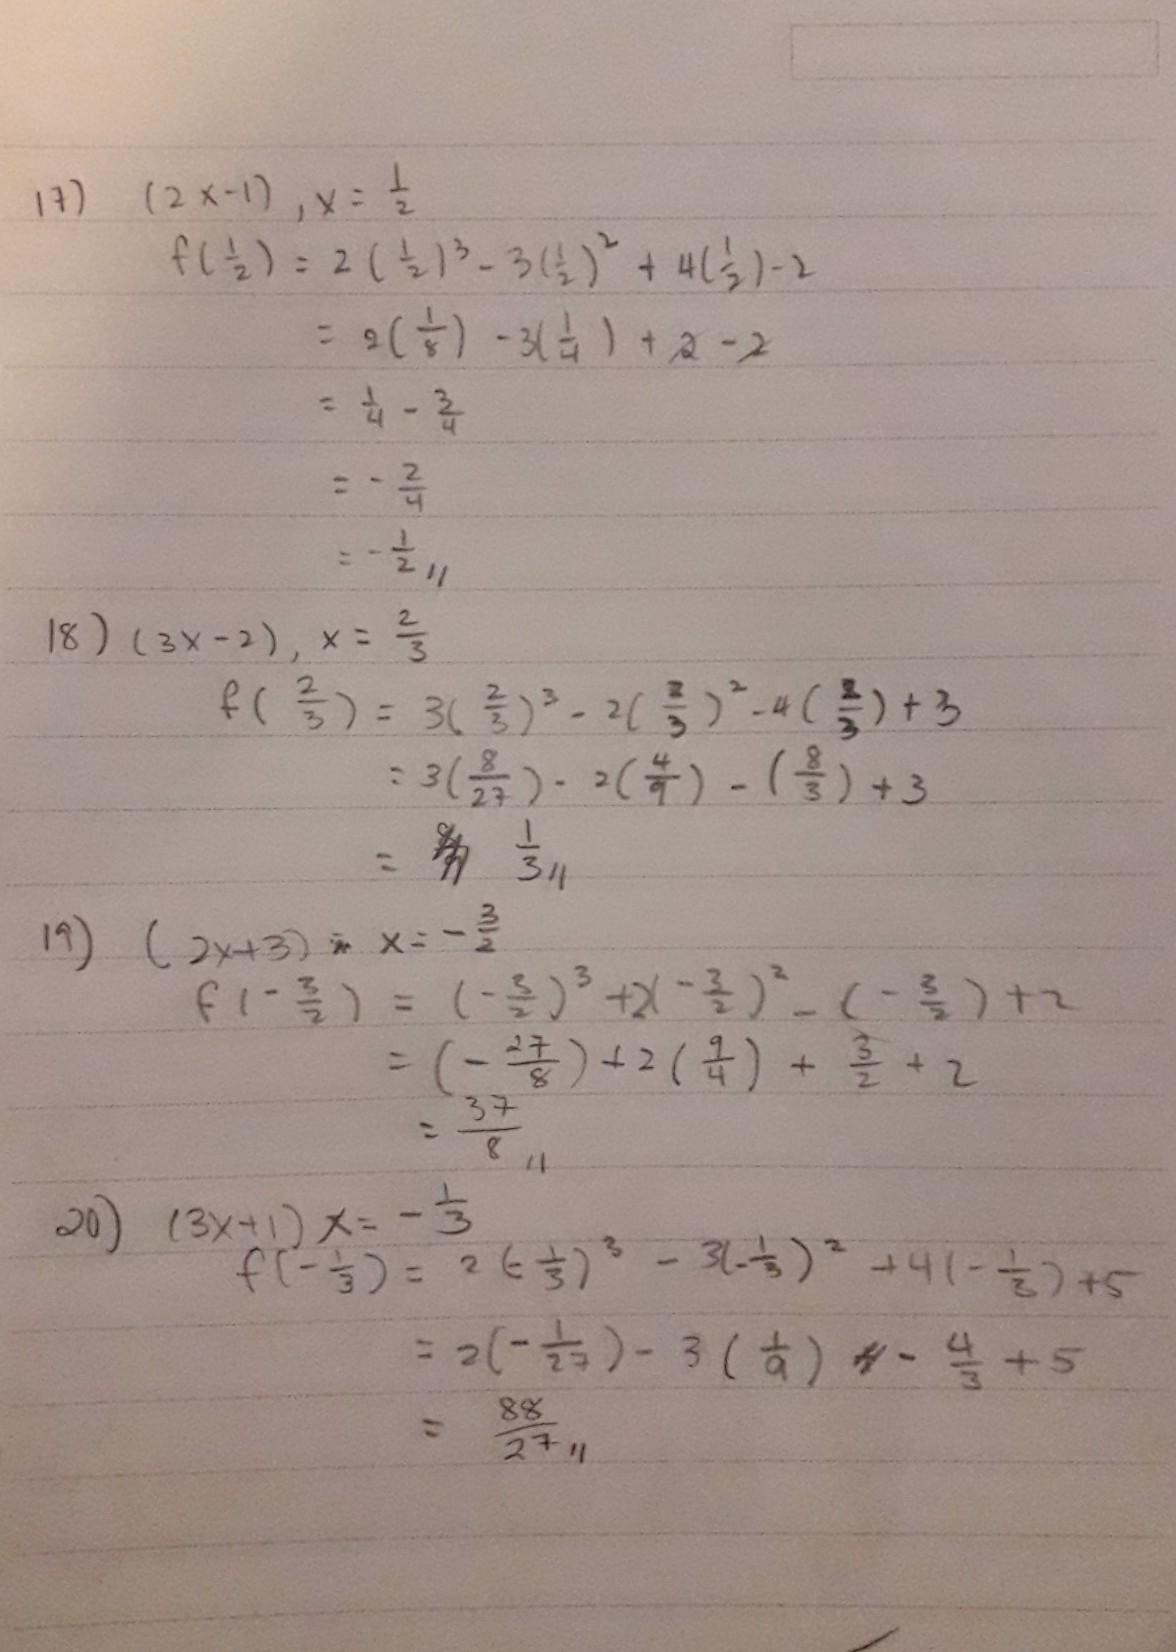 17) (2x-1), x = 1/2
f(1/2) = 2(1/2)³ - 3(1/2)² + 4(1/2) - 2
= 2(1/8) - 3(1/4) + 2 - 2
= 1/4 - 3/4
= - 2/4
= - 1/2 //
18) (3x-2), x = 2/3
f(2/3) = 3(2/3)³ - 2(2/3)² - 4(2/3) + 3
= 3(8/27) - 2(4/9) - (8/3) + 3
= 1/3 //
19) (2x+3) x = - 3/2
f(- 3/2) = (- 3/2)³ + 2(- 3/2)² - (- 3/2) + 2
= (- 27/8) + 2(9/4) + 3/2 + 2
= 37/8 //
20) (3x+1) x = - 1/3
f(- 1/3) = 2(- 1/3)³ - 3(- 1/3)² + 4(- 1/3) + 5
= 2(- 1/27) - 3(1/9) - 4/3 + 5
= 88/27 //